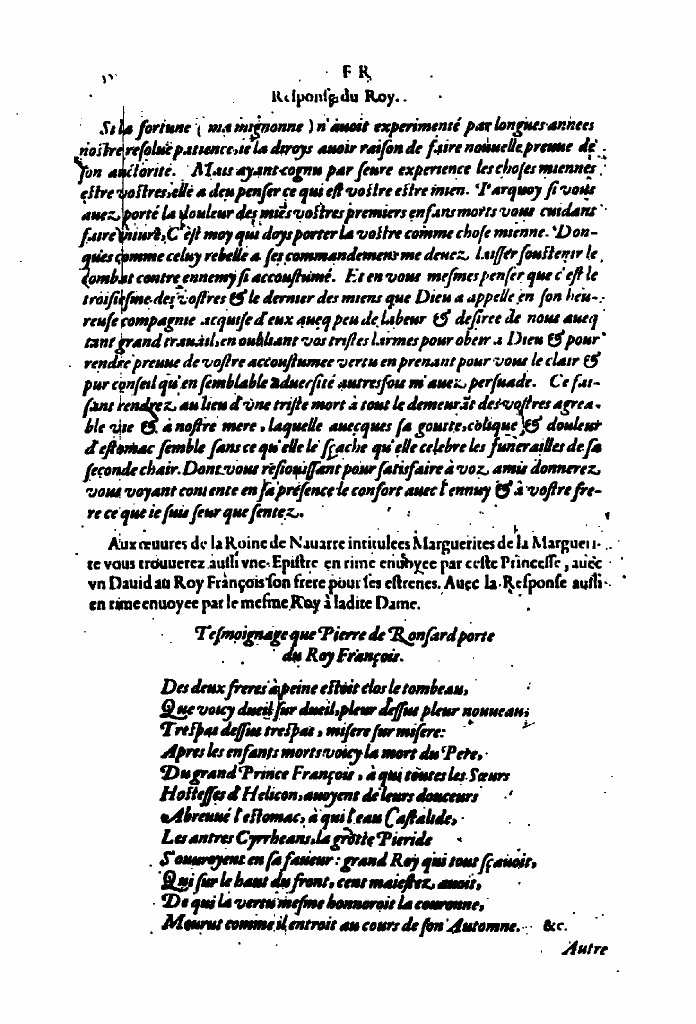 F R
Responsę du Roy.
Si la fortune ( ma mignonne ) n'auoit experimenté par longues annees
nostre resoluë patience, ie la diroys auoir raison de faire nouuelle preuue de
son auctorité. Mais ayant cognu par seure experience les choses miennes
estre vostres, elle a deu penser ce qui est vostre estre mien. Parquoy si vous
auez porté la douleur des miēs vostres premiers enfans morts vous cuidans
faire iniure, C'est moy qui doys porter la vostre comme chose mienne. Don-
ques comme celuy rebelle a ses commandemens me deuez laisser soustenir le
combat contre ennemy si accoustumé. Et en vous mesmes penser que c'est le
troisiesme des vostres & le dernier des miens que Dieu a appellé en son heu-
reuse compagnie acquise d'eux aueq peu de labeur & desiree de nous aueq
tant grand trauail, en oubliant vos tristes larmes pour obeir a Dieu & pour
rendre preuue de vostre accoustumee vertu en prenant pour vous le clair &
pur conseil qu'en semblable aduersité autresfois m'auez persuade. Ce fai-
sant rendrez au lieu d'vne triste mort à tout le demeurāt des vostres agrea-
ble vie & à nostre mere, laquelle auecques sa goutte, colique & douleur
d'estomac semble sans ce qu'elle le sçache qu'elle celebre les funerailles de sa
seconde chair. Dont vous resiouissant pour satisfaire à voz amis donnerez
vous voyant contente en sa présence le confort auec l'ennuy & à vostre fre-
re ce que ie suis seur que sentez.
Aux œuures de la Roine de Nauarre intitulees Marguerites de la Marguerì-
te vous trouuerez aussi vne Epistre en rime enuoyee par ceste Princesse, auec
vn Dauid au Roy François son frere pour ses estrenes. Auec la Responſe aussi
en rime enuoyee par le mesme Roy à ladite Dame.
Tesmoignage que Pierre de Ronsard porte
du Roy François.
Des deux freres à peine estoit clos le tombeau,
Que voicy dueil sur dueil, pleur dessus pleur nouueau;
Trespas dessus trespas, misere sur misere:
Apres les enfants morts voicy la mort du Pere,
Du grand Prince François, à qui toutes les Sœurs
Hostesses d'Helicon, auoyent de leurs douceurs
Abreuué l'estomac, à qui l'eau Castalide,
Les antres Cyrrheans, la grotte Pieride
S'ouuroyent en sa faueur: grand Roy qui tout sçauoit,
Qui sur le haut du front, cent maiestez auoit,
De qui la vertu mesme honnoroit la couronne,
Mourut comme il entroit au cours de son Automne. &c.
Autre